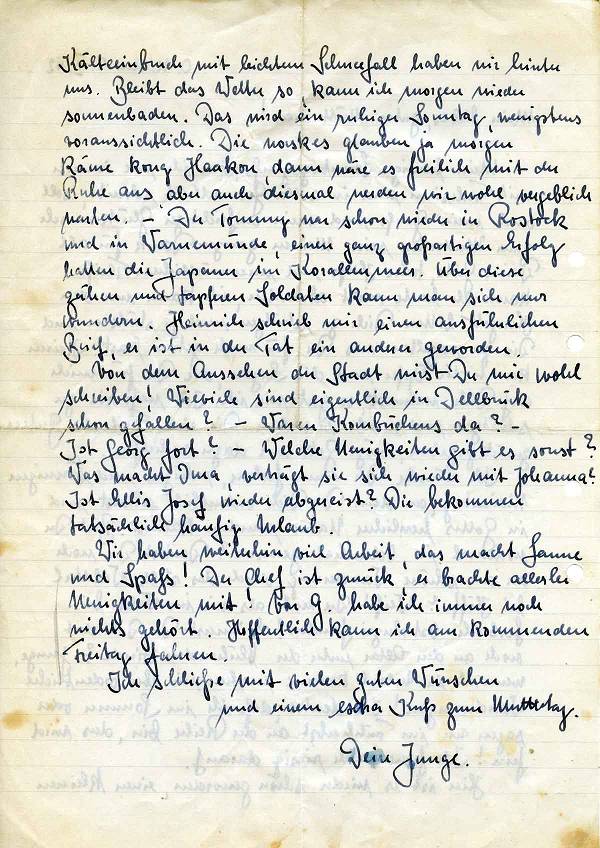 Kälteeinbruch mit leichtem Schneefall haben wir hinter
uns. Bleibt das Wetter so, kann ich morgen wieder
sonnenbaden. Das wird ein ruhiger Sonntag, wenigstens
voraussichtlich. Die norskes glauben ja morgen
käme kong Haakon, dann wäre es freilich mit der
Ruhe aus, aber auch diesmal werden wir wohl vergeblich
warten. – Der Tommy war schon wieder in Rostock
und in Warnemünde, einen ganz großartigen Erfolg
hatten die Japaner im Korallenmeer. Über diese
zähen und tapferen Soldaten kann man sich nur
wundern. Heinrich schrieb mir einen ausführlichen
Brief, er ist in der Tat ein anderer geworden.
Von dem Aussehen der Stadt wirst Du mir wohl
schreiben! Wieviele sind eigentlich in Dellbrück
schon gefallen? – Waren Kombüchens da? –
Ist Georg fort? – Welche Neuigkeiten gibt es sonst?
Was macht Oma, verträgt sie sich wieder mit Johanna?
Ist Josef wieder abgereist? Die bekommen
tatsächlich häufig Urlaub.
Wir haben weiterhin viel Arbeit, das macht Laune
und Spaß! Der Chef ist zurück, er brachte allerlei
Neuigkeiten mit! Von G. habe ich immer noch
nichts gehört. Hoffentlich kann ich am kommenden
Freitag fahren.
Ich schließe mit vielen guten Wünschen
und einem Kuß zum Muttertag.
Dein Junge.